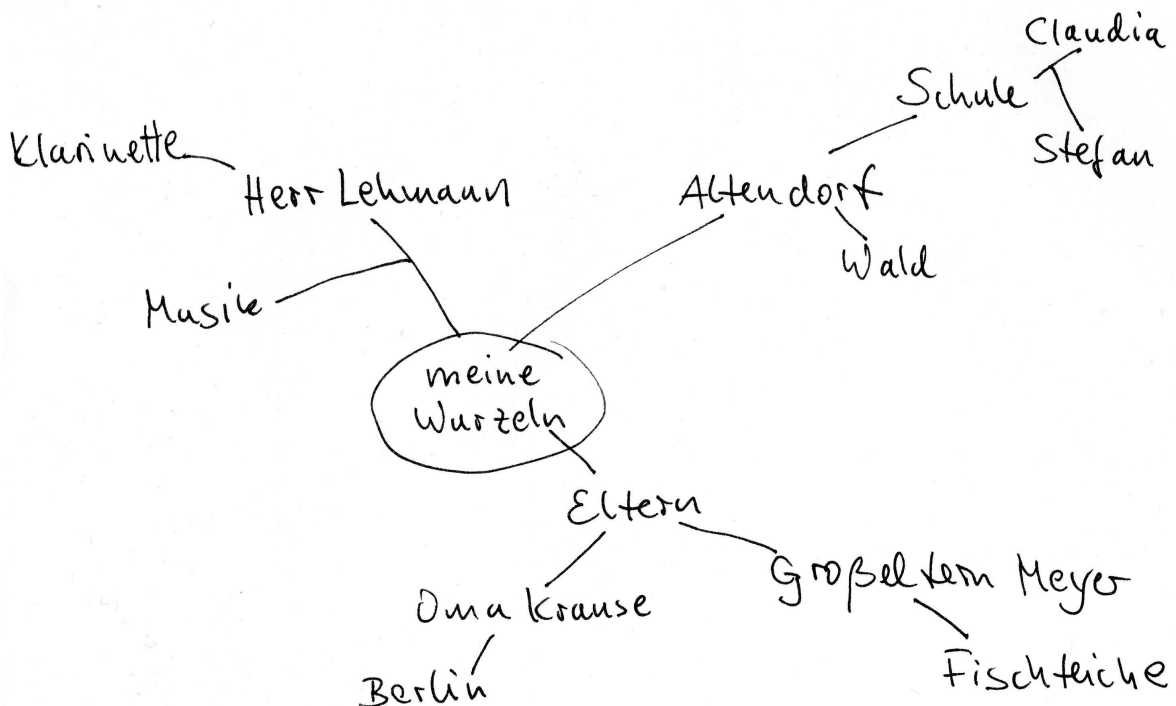 Claudia
Schule
Stefan
Klarinette
Herr Lehmann
Altendorf
Wald
Musik
meine
Wurzeln
Eltern
Großeltern Meyer
Oma Krause
Fischteiche
Berlin